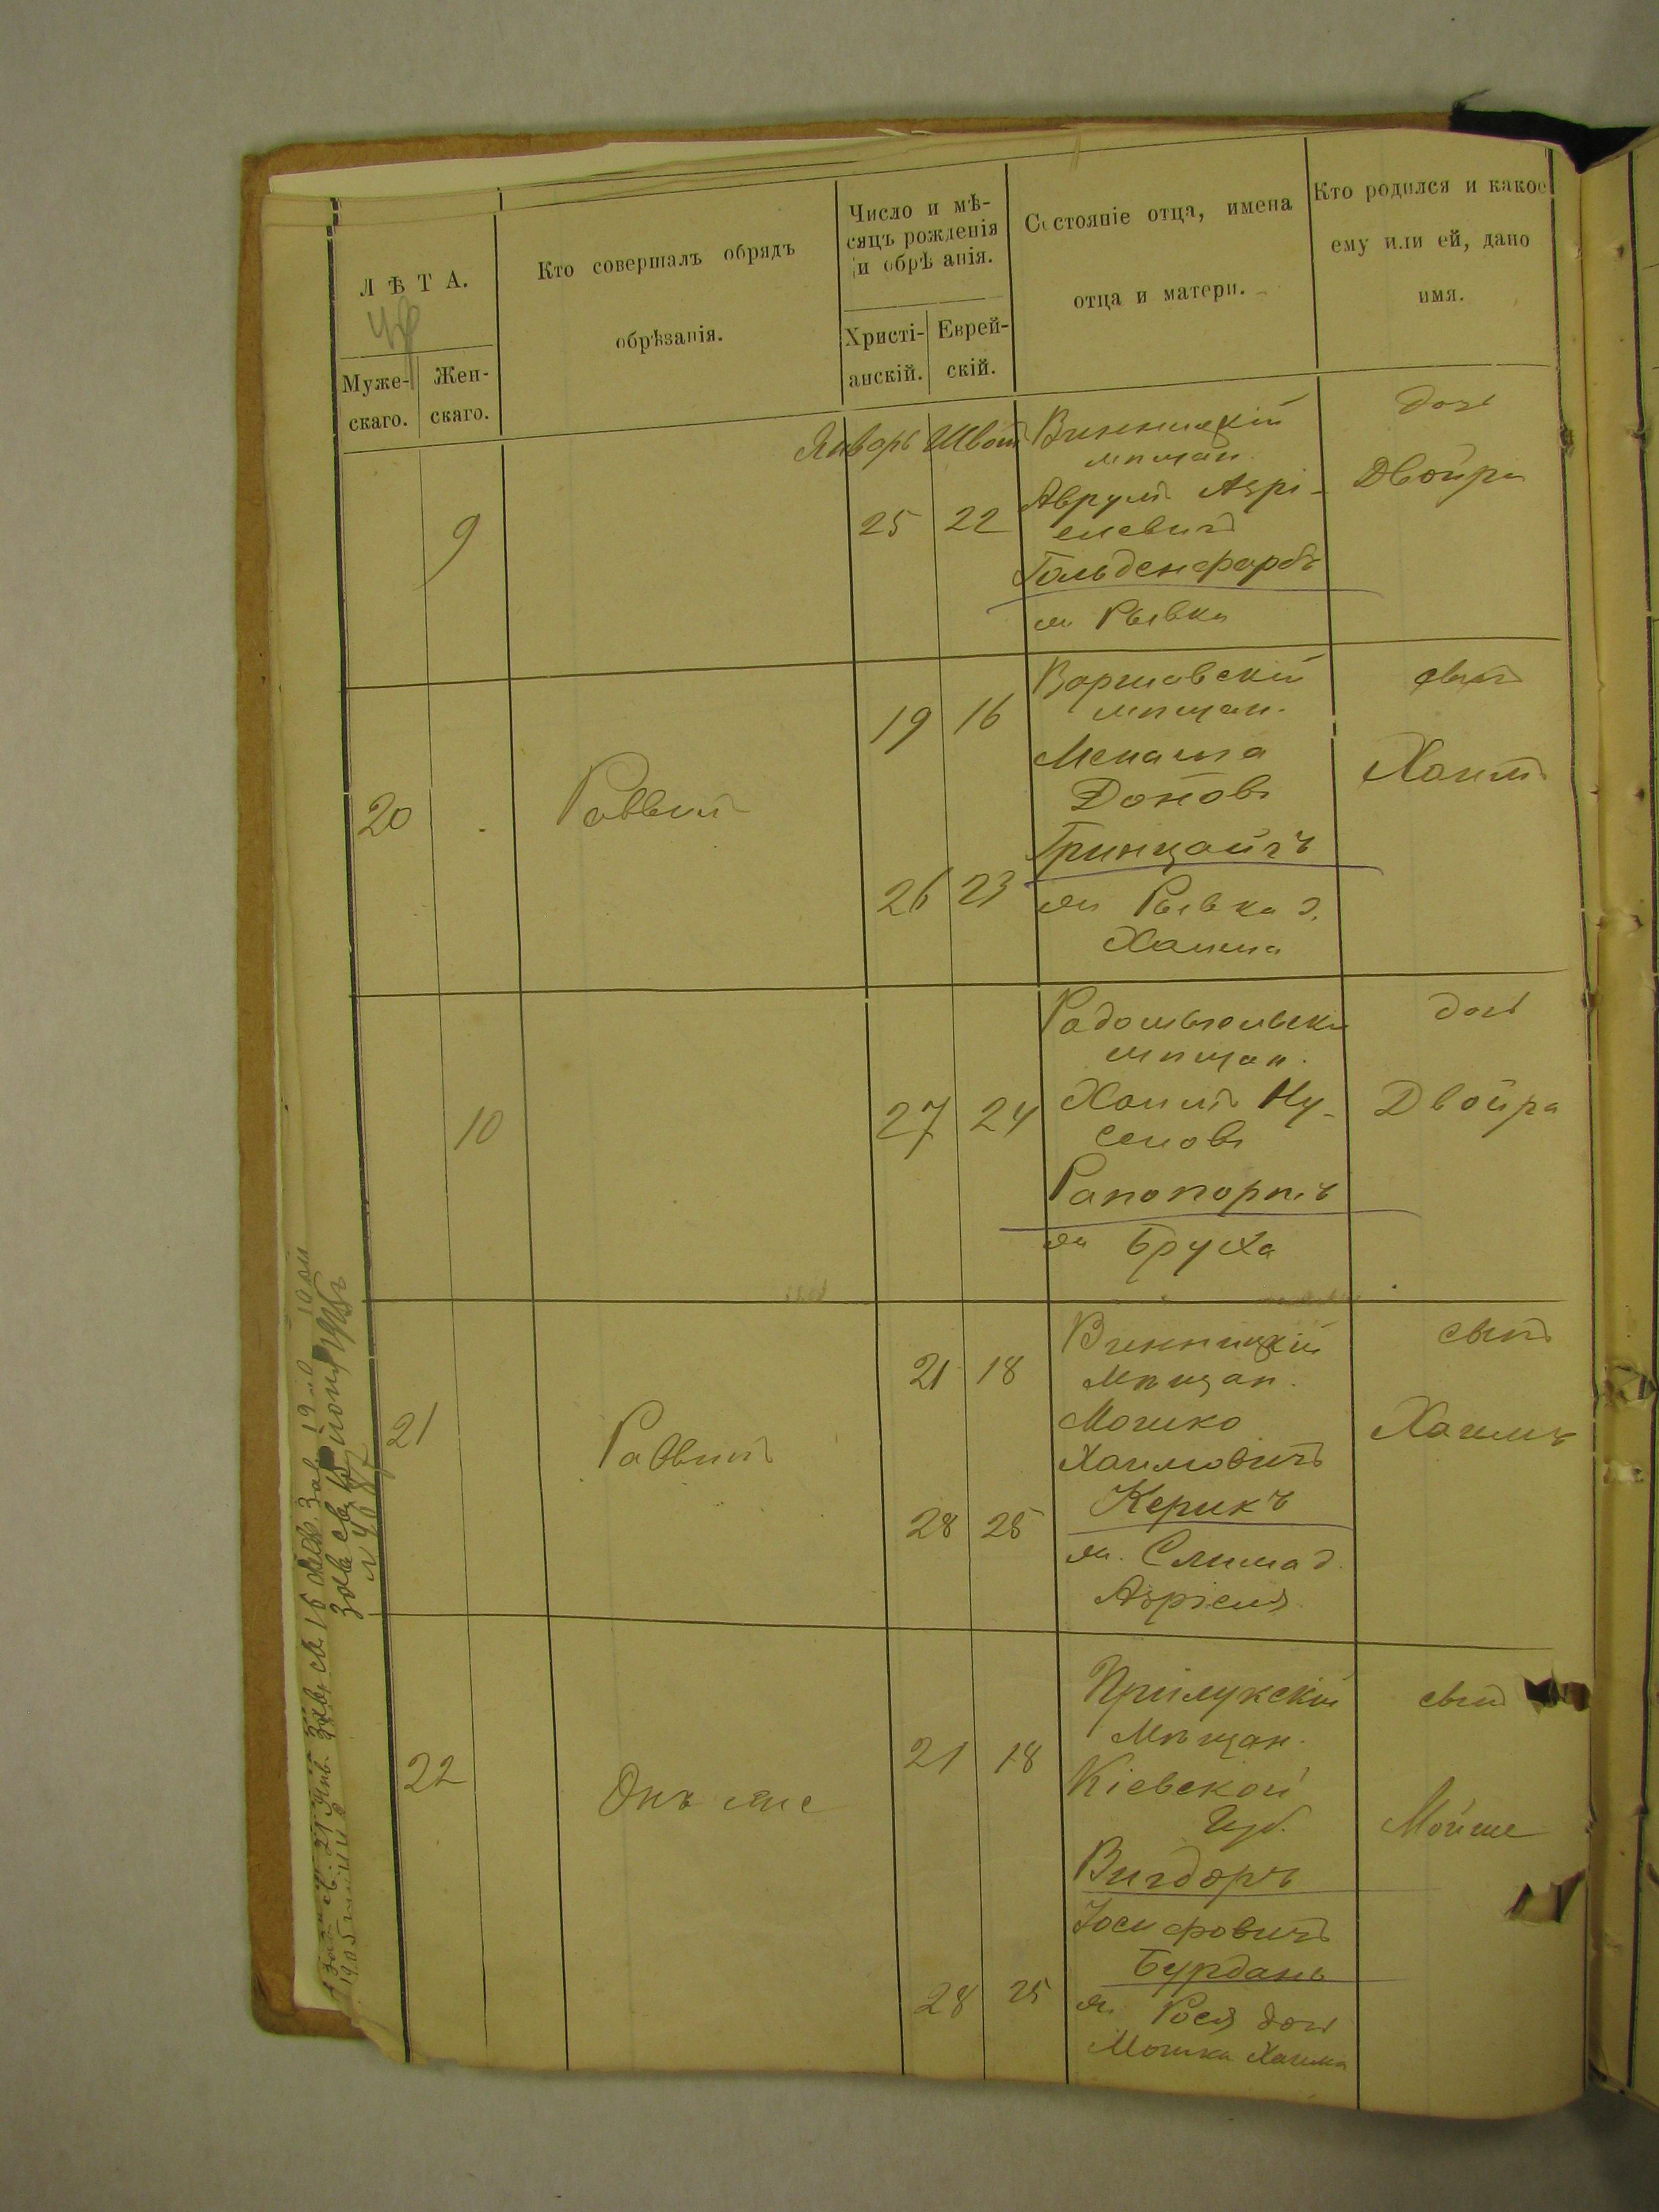 Л Ѣ Т А.
Муже-
скаго.
Жен-
скаго.
Кто совершалъ обрядъ
обрѣзанія.
Число и мѣ-
сяцъ рожденія
и обрѣ анія.
Христі-
анскій.
Еврей-
скій.
Состояніе отца, имена
отца и матери.
Кто родился и какое
ему или ей, дано
имя.
9
Январь Шватъ
25 22
Винницкій
мѣщан.
Аврумъ Азрі-
елевичъ
Гольденфарбъ
м Рывка
дочь
Двойра
20
Раввинъ
19 16
26 23
Варшавскій
мѣщан.
Менаша
Доновъ
Гринцайгъ
м Рывка д.
Хаима
сынъ
Хаимъ
10
27 24
Радомысльскій
мѣщан.
Хаимъ Ну-
Рапопортъ
м Бруха
дочь
Двойра
21
Раввинъ
21 18
28 25
Винницкій
Мѣщан.
Мошко
Хаимовичъ
Керикъ
м. Слима д.
Азріеля
сынъ
Хаимъ
22
Онъ же
21 18
28 25
Прилукскій
Мѣщан.
Кіевской
Губ.
Вигдоръ
Іосифовичъ
Бурданъ
м. Рося дочь
Мошка Хаима
сынъ
Мойше